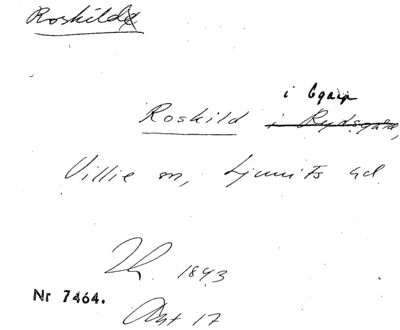 Roskilde
i Egarp
Roskild i Rydsgård,
Villie sn, Ljunits hd.
Th. 1843
Nr 7464.
Akt 17